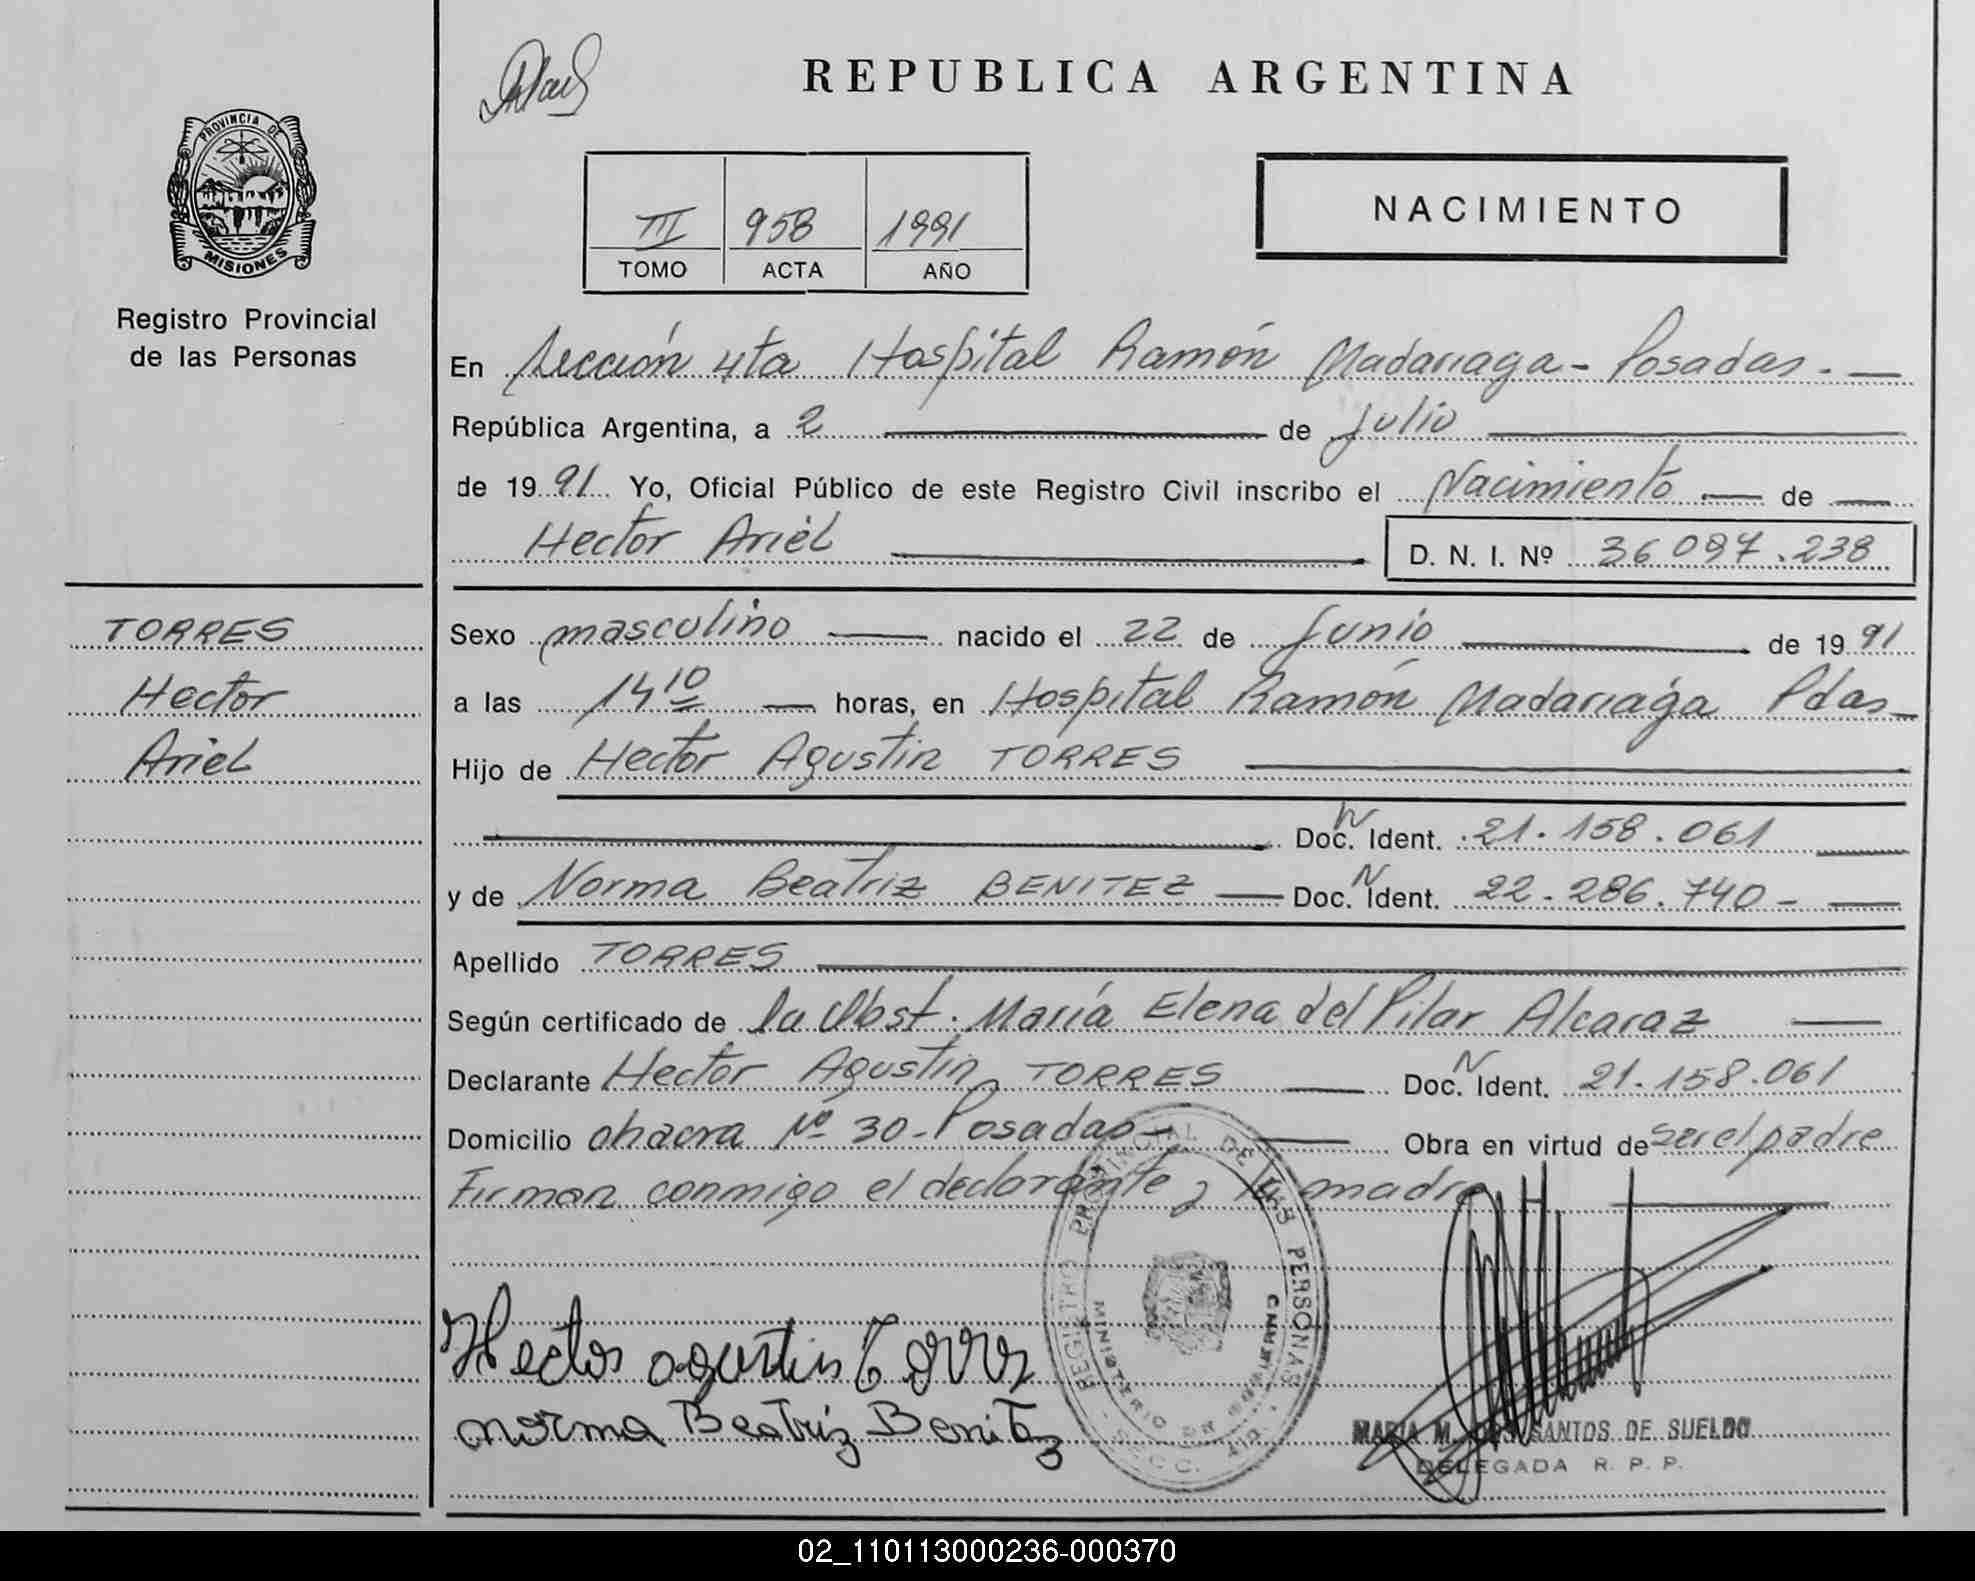 REPUBLICA ARGENTINA
PROVINCIA DE
MISIONES
Registro Provincial
de las Personas
NACIMIENTO
III 958 1991
TOMO ACTA AÑO
En Sección 4ta Hospital Ramón Madariaga - Posadas. —
República Argentina, a 2 — de Julio —
de 1991 Yo, Oficial Público de este Registro Civil inscribo el Nacimiento — de —
Hector Ariel — D. N. I. Nº 36.097.238
TORRES
Hector
Ariel
Sexo masculino — nacido el 22 de Junio — de 1991
a las 14 10 — horas, en Hospital Ramón Madariaga Pdas —
Hijo de Hector Agustin TORRES —
— Doc. N Ident. 21.158.061 —
y de Norma Beatriz BENITEZ — Doc. N Ident. 22.286.740 - —
Apellido TORRES —
Según certificado de la Obst. María Elena del Pilar Alcaraz —
Declarante Hector Agustin TORRES — Doc. N Ident. 21.158.061
Domicilio chacra Nº 30 - Posadas - — Obra en virtud de ser el padre
Firman conmigo el declarante y la madre —
Hector agustin Torres
norma Beatriz Benitez
REGISTRO PROVINCIAL DE LAS PERSONAS
MINISTERIO DE GOBIERNO
SECC. 4ta.
MARIA M. DOS SANTOS DE SUELDO
DELEGADA R. P. P.
02_110113000236-000370